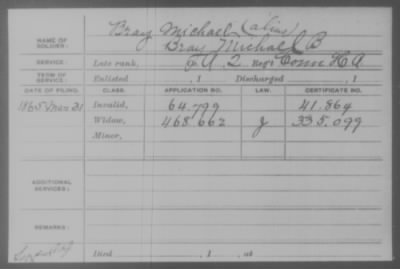 NAME OF SOLDIER: Bray Michael (alias)
Bray Michael B
SERVICE: Late rank, A 2 Reg't Conn H A
TERM OF SERVICE: Enlisted , 1 Discharged , 1
DATE OF FILING. CLASS. APPLICATION NO. LAW. CERTIFICATE NO.
1865 Mar 31 Invalid, 64.799 41.864
Widow, 468.662 J 335.099
Minor,
ADDITIONAL SERVICES:
REMARKS:
Died , 1 , at